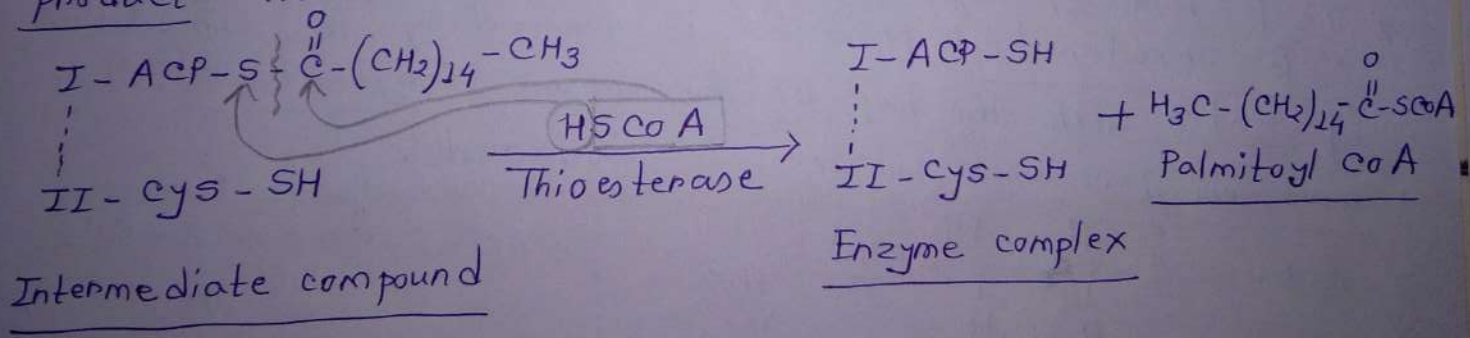 product
O
||
I - ACP - S - C - (CH2)14 - CH3
II - Cys - SH
Intermediate compound
HSCoA
Thioesterase
I - ACP - SH
II - Cys - SH
Enzyme complex
O
||
+ H3C - (CH2)14 - C - SCoA
Palmitoyl CoA